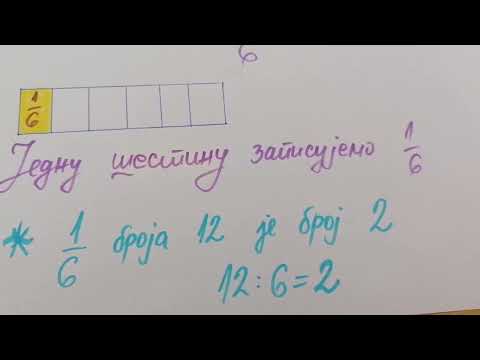 6
1/6
Једну шестину записујемо 1/6
* 1/6 броја 12 је број 2
12:6=2